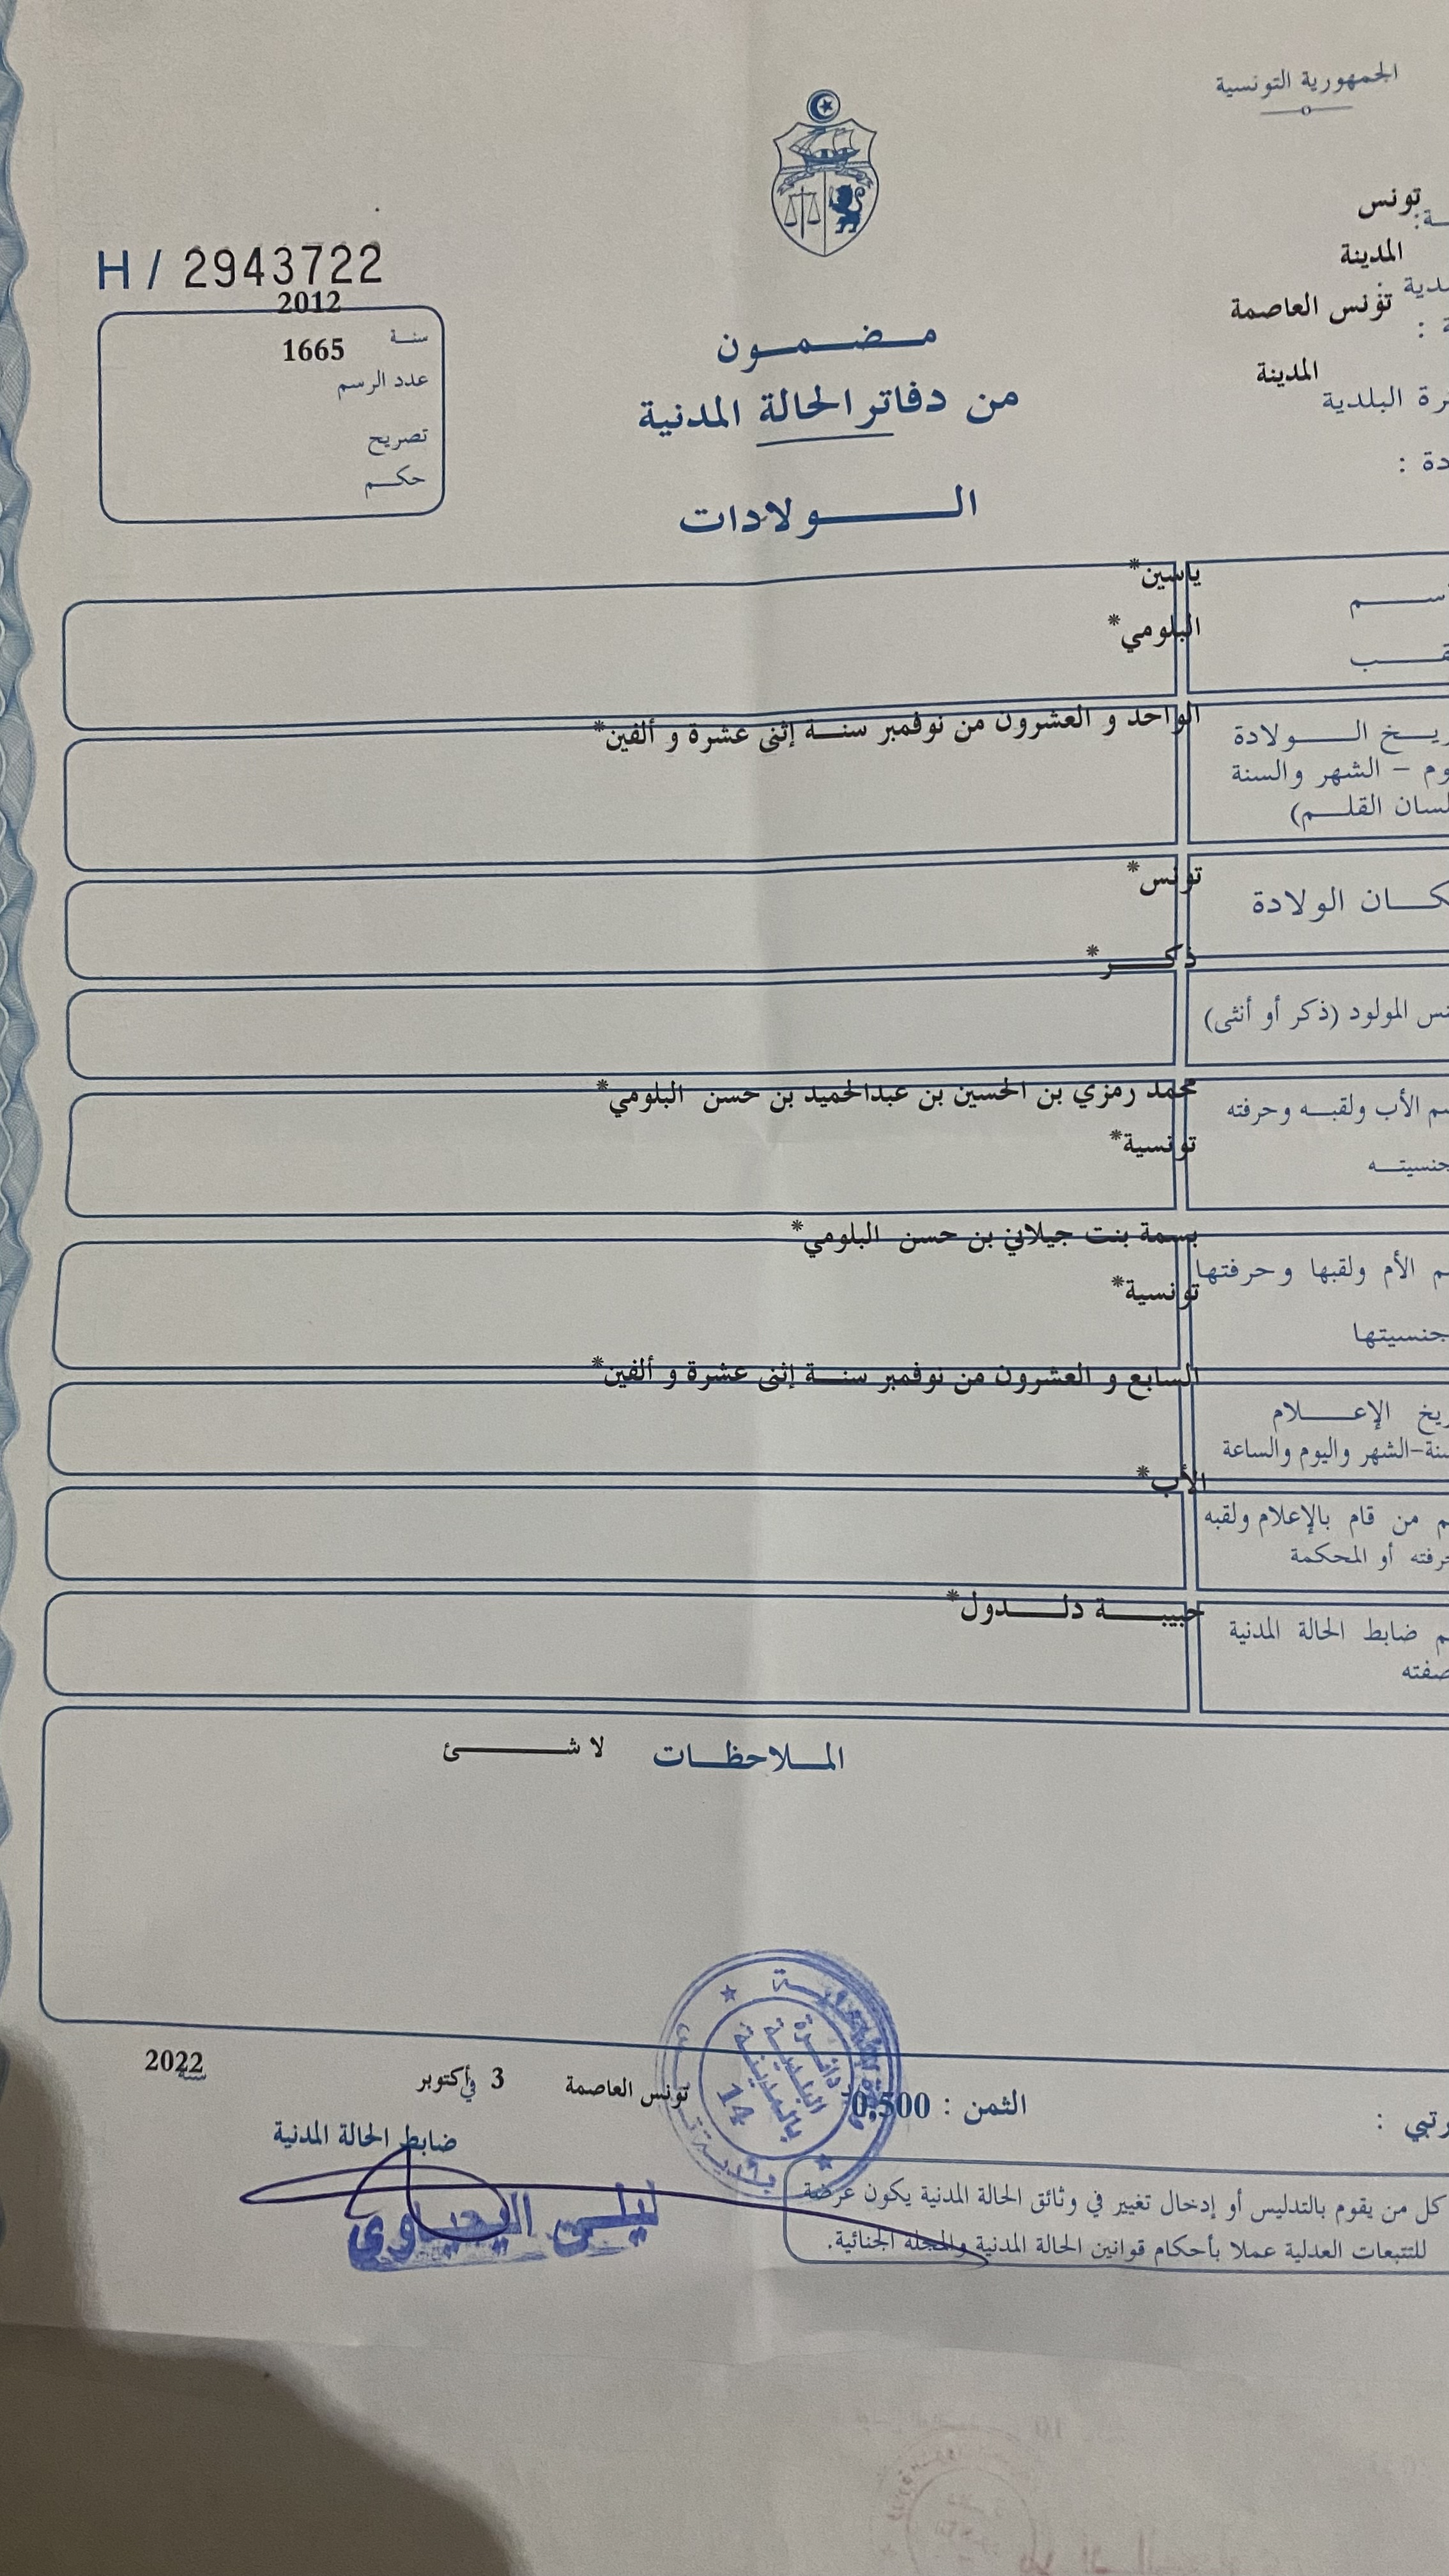 الجمهورية التونسية
تونس
المدينة
تونس العاصمة
المدينة
البلدية
H / 2943722
2012
سنة
1665
عدد الرسم
تصريح
حكم
مضمون
من دفاتر الحالة المدنية
الولادات
ياسين*
البلومي*
الواحد و العشرون من نوفمبر سنة إثنى عشرة و ألفين*
الولادة
الشهر والسنة
القلم)
تونس*
الولادة
ذكر*
المولود (ذكر أو أنثى)
محمد رمزي بن الحسين بن عبدالحميد بن حسن البلومي*
الأب ولقبه وحرفته
تونسية*
جنسيته
بسمة بنت جيلاني بن حسن البلومي*
الأم ولقبها وحرفتها
تونسية*
جنسيتها
السابع و العشرون من نوفمبر سنة إثنى عشرة و ألفين*
الإعلام
الشهر واليوم والساعة
الأب*
من قام بالإعلام ولقبه
أو المحكمة
حبيبة دلدول*
ضابط الحالة المدنية
الملاحظات لا شئ
الثمن : 0,500
تونس العاصمة في 3 أكتوبر سنة 2022
ضابط الحالة المدنية
ليلى اليحياوي
دائرة
البلدية
بالمدينة
14
كل من يقوم بالتدليس أو إدخال تغيير في وثائق الحالة المدنية يكون عرضة
للتتبعات العدلية عملا بأحكام قوانين الحالة المدنية والمجلة الجنائية.